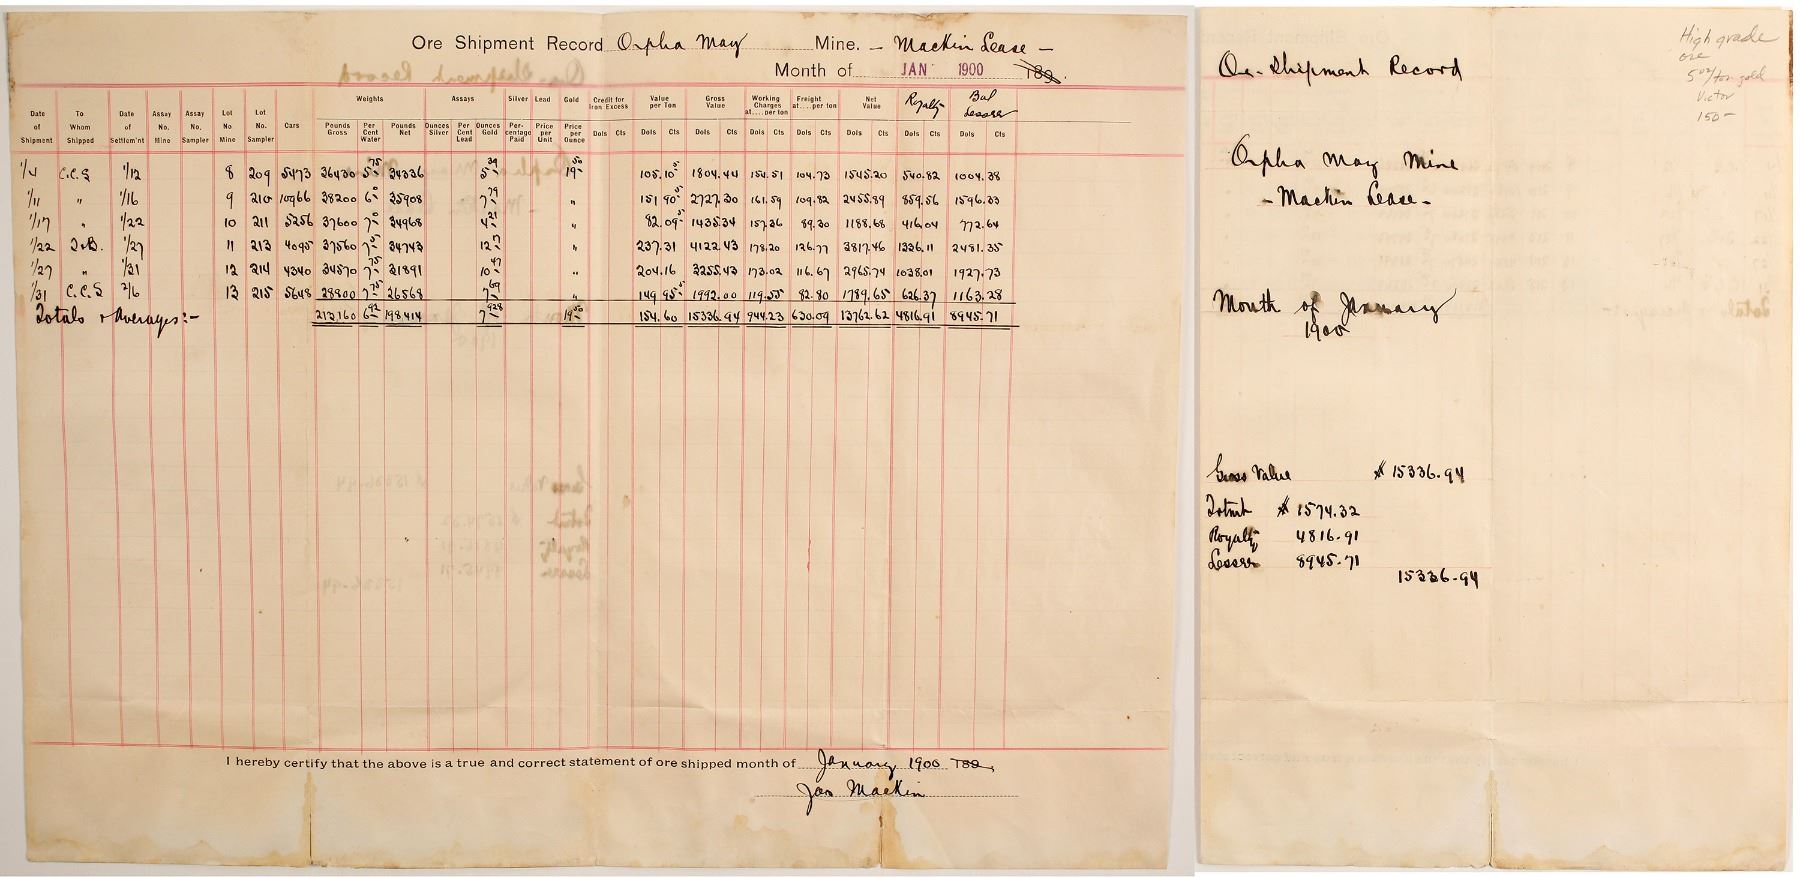 Ore Shipment Record Orpha May Mine. - Mackin Lease -
Month of JAN 1900 189 .
Date of Shipment | To Whom Shipped | Date of Settlem'nt | Assay No. Mine | Assay No. Sampler | Lot No Mine | Lot No. Sampler | Cars | Weights | Pounds Gross | Per Cent Water | Pounds Net | Assays | Ounces Silver | Per Cent Lead | Ounces Gold | Silver Percentage Paid | Lead Price per Unit | Gold Price per Ounce | Credit for Iron Excess Dols Cts | Value per Ton Dols Cts | Gross Value Dols Cts | Working Charges at....per ton Dols Cts | Freight at....per ton Dols Cts | Net Value Dols Cts | Royalty Dols Cts | Bal Lessee Dols Cts
1/4 C.C.S 1/12 8 209 5473 36430 5 75 34336 5 39 19 50 105.10 5 1804.44 154.51 104.73 1545.20 540.82 1004.38
1/11 " 1/16 9 210 10966 38200 6 0 35908 7 79 " 151 90 5 2727.30 161.59 109.82 2455.89 859.56 1596.33
1/17 " 1/22 10 211 5256 37600 7 0 34968 4 21 " 82.09 5 1435.34 157.36 89.30 1188.68 416.04 772.64
1/22 1/27 11 213 4095 37560 7 5 34743 12 17 " 237.31 4122.43 178.20 126.77 3817.46 1336.11 2481.35
1/27 " 1/31 12 214 4340 34570 7 75 31891 10 47 " 204.16 3255.43 173.02 116.67 2965.74 1038.01 1927.73
1/31 C.C.S 2/6 13 215 5648 28800 7 75 26568 7 69 " 149 95 5 1992.00 119.55 82.80 1789.65 626.37 1163.28
Totals & Averages:- 213160 6 92 198414 7 928 19 50 154.60 15336.94 944.23 630.09 13762.62 4816.91 8945.71
I hereby certify that the above is a true and correct statement of ore shipped month of January 1900 189 .
Jas Mackin
Ore-Shipment Record
Orpha May Mine
- Mackin Lease -
Month of January
1900
Gross Value $ 15336.94
Totmt $ 1574.32
Royalty 4816.91
Lessee 8945.71
15336.94
High grade
ore
5 oz/ton gold
Victor
150-